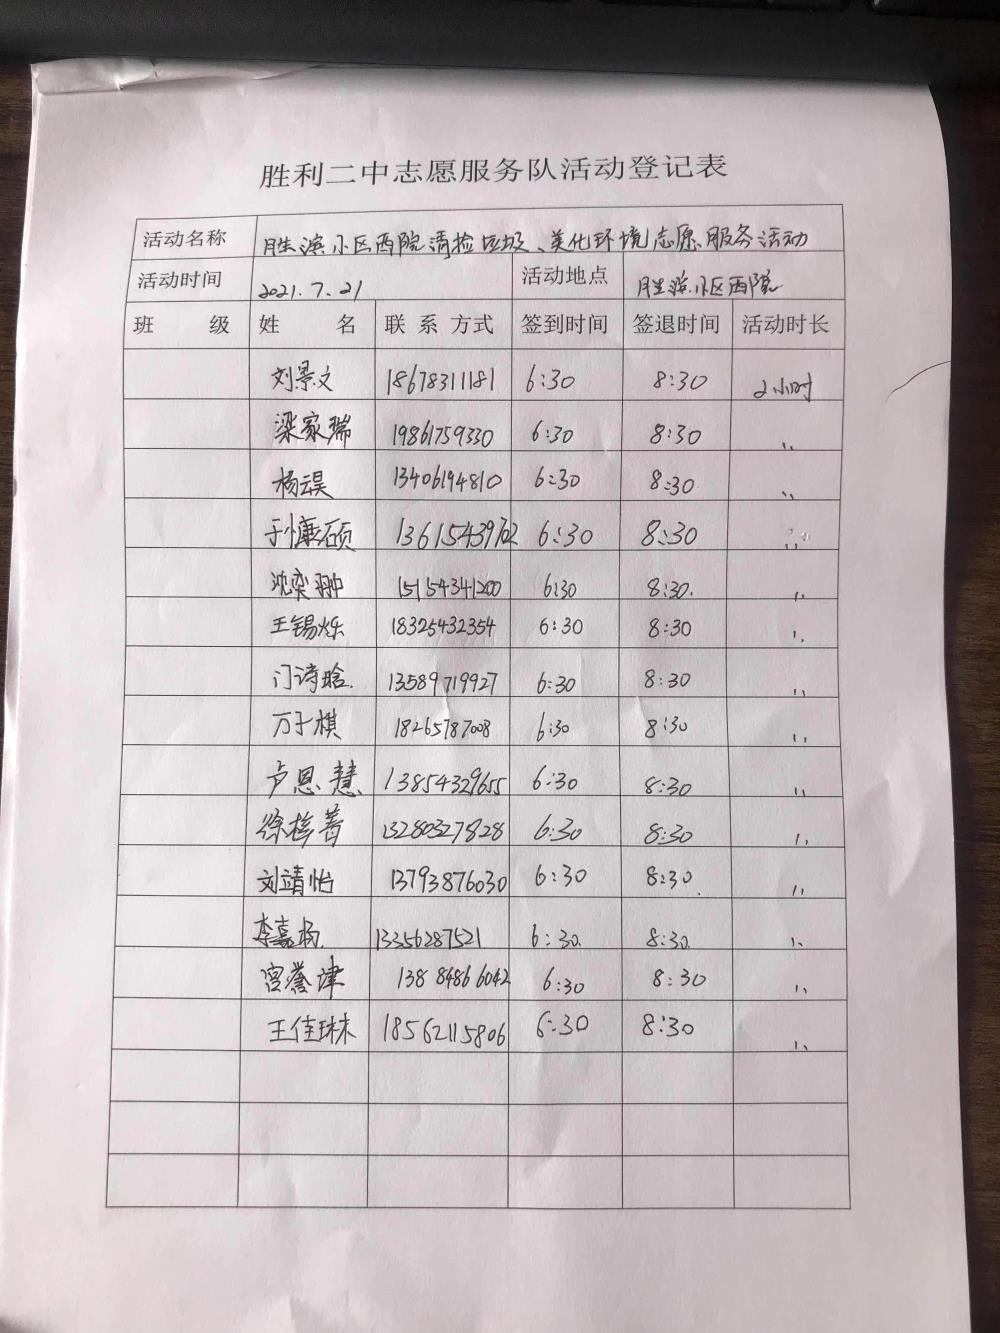 胜利二中志愿服务队活动登记表
活动名称 胜滨小区西院清捡垃圾、美化环境志愿服务活动
活动时间 2021.7.21 活动地点 胜滨小区西院
班 级 姓 名 联系方式 签到时间 签退时间 活动时长
刘景文 18678311181 6:30 8:30 2小时
梁家瑞 19861759330 6:30 8:30 〃
杨昊 13406194810 6:30 8:30 〃
于慷硕 13615439702 6:30 8:30 〃
沈奕翀 15154341200 6:30 8:30. 〃
王锡烁 18325432354 6:30 8:30 〃
门诗晗. 13589719927 6:30 8:30 〃
万子棋 18265787008 6:30 8:30 〃
卢恩慧 13854329655 6:30 8:30 〃
徐梓菁 13280327828 6:30 8:30 〃
刘靖怡 13793876030 6:30 8:30 〃
李嘉杨. 13356287521 6:30. 8:30. 〃
宫誉津 13884866042 6:30 8:30 〃
王佳琳 18562115806 6:30 8:30 〃